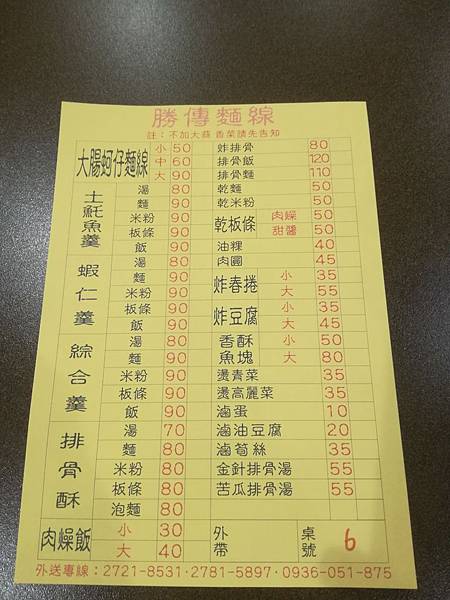 勝傳麵線
註：不加大蒜 香菜請先告知
大腸蚵仔麵線 小 50
中 60
大 90
土魠魚羹 湯 80
麵 90
米粉 90
板條 90
飯 90
蝦仁羹 湯 80
麵 90
米粉 90
板條 90
飯 90
綜合羹 湯 80
麵 90
米粉 90
板條 90
飯 90
排骨酥 湯 70
麵 80
米粉 80
板條 80
泡麵 80
肉燥飯 小 30
大 40
炸排骨 80
排骨飯 120
排骨麵 110
乾麵 50
乾米粉 50
乾板條 肉燥 50
甜醬 50
油粿 40
肉圓 45
炸春捲 小 35
大 55
炸豆腐 小 35
大 45
香酥魚塊 小 50
大 80
燙青菜 35
燙高麗菜 35
滷蛋 10
滷油豆腐 20
滷筍絲 35
金針排骨湯 55
苦瓜排骨湯 55
外帶 桌號 6
外送專線：2721-8531·2781-5897·0936-051-875